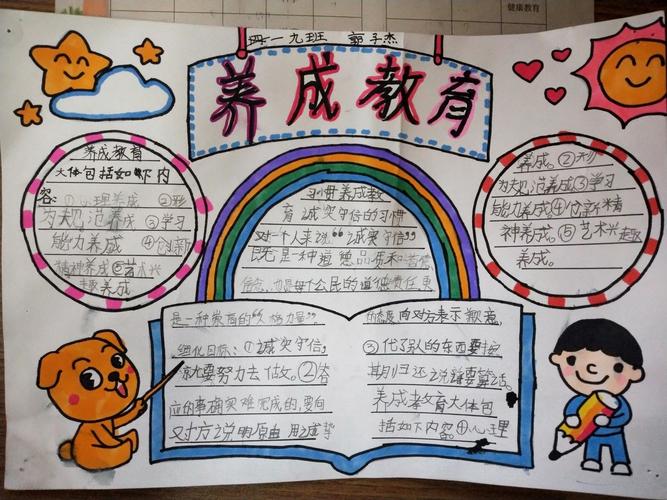 健康教育
四一九班 郭子杰
养成教育
养成教育
大体包括如下内
容。①心理养成 ②形
为规范养成 ③学习
能力养成 ④创新
精神养成⑤艺术兴
趣养成
习惯养成教
育 诚实守信的习惯
对一个人来说"诚实守信"
既是一种道德品质和
也是每个公民的道德责任
是一种崇高的"人格力量"。
细化目标:①诚实守信,
说就要努力去做。②答
应的事确实难完成的,要向
对方说明原由 用诚挚
的态度向对方表示歉意,
③代了别的东西要按
期归还 说话要算话。
养成孝教育大体包
括如下内容。①心理
养成。②形
为规范养成③学习
能力养成④创新精
神养成。⑤艺术兴趣
养成。